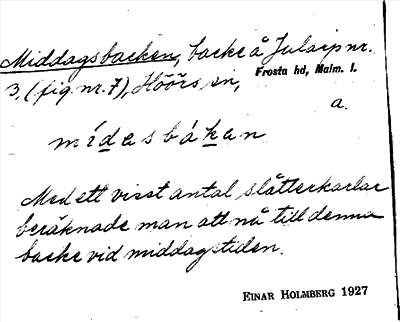 Middagsbacken, backe å Julaip nr.
3, (fig nr. 7), Höörs sn, Frosta hd, Malm. l.
a.
mídasbákan
Med ett visst antal slåtterkarlar
beräknade man att nå till denna
backe vid middagstiden.
EINAR HOLMBERG 1927